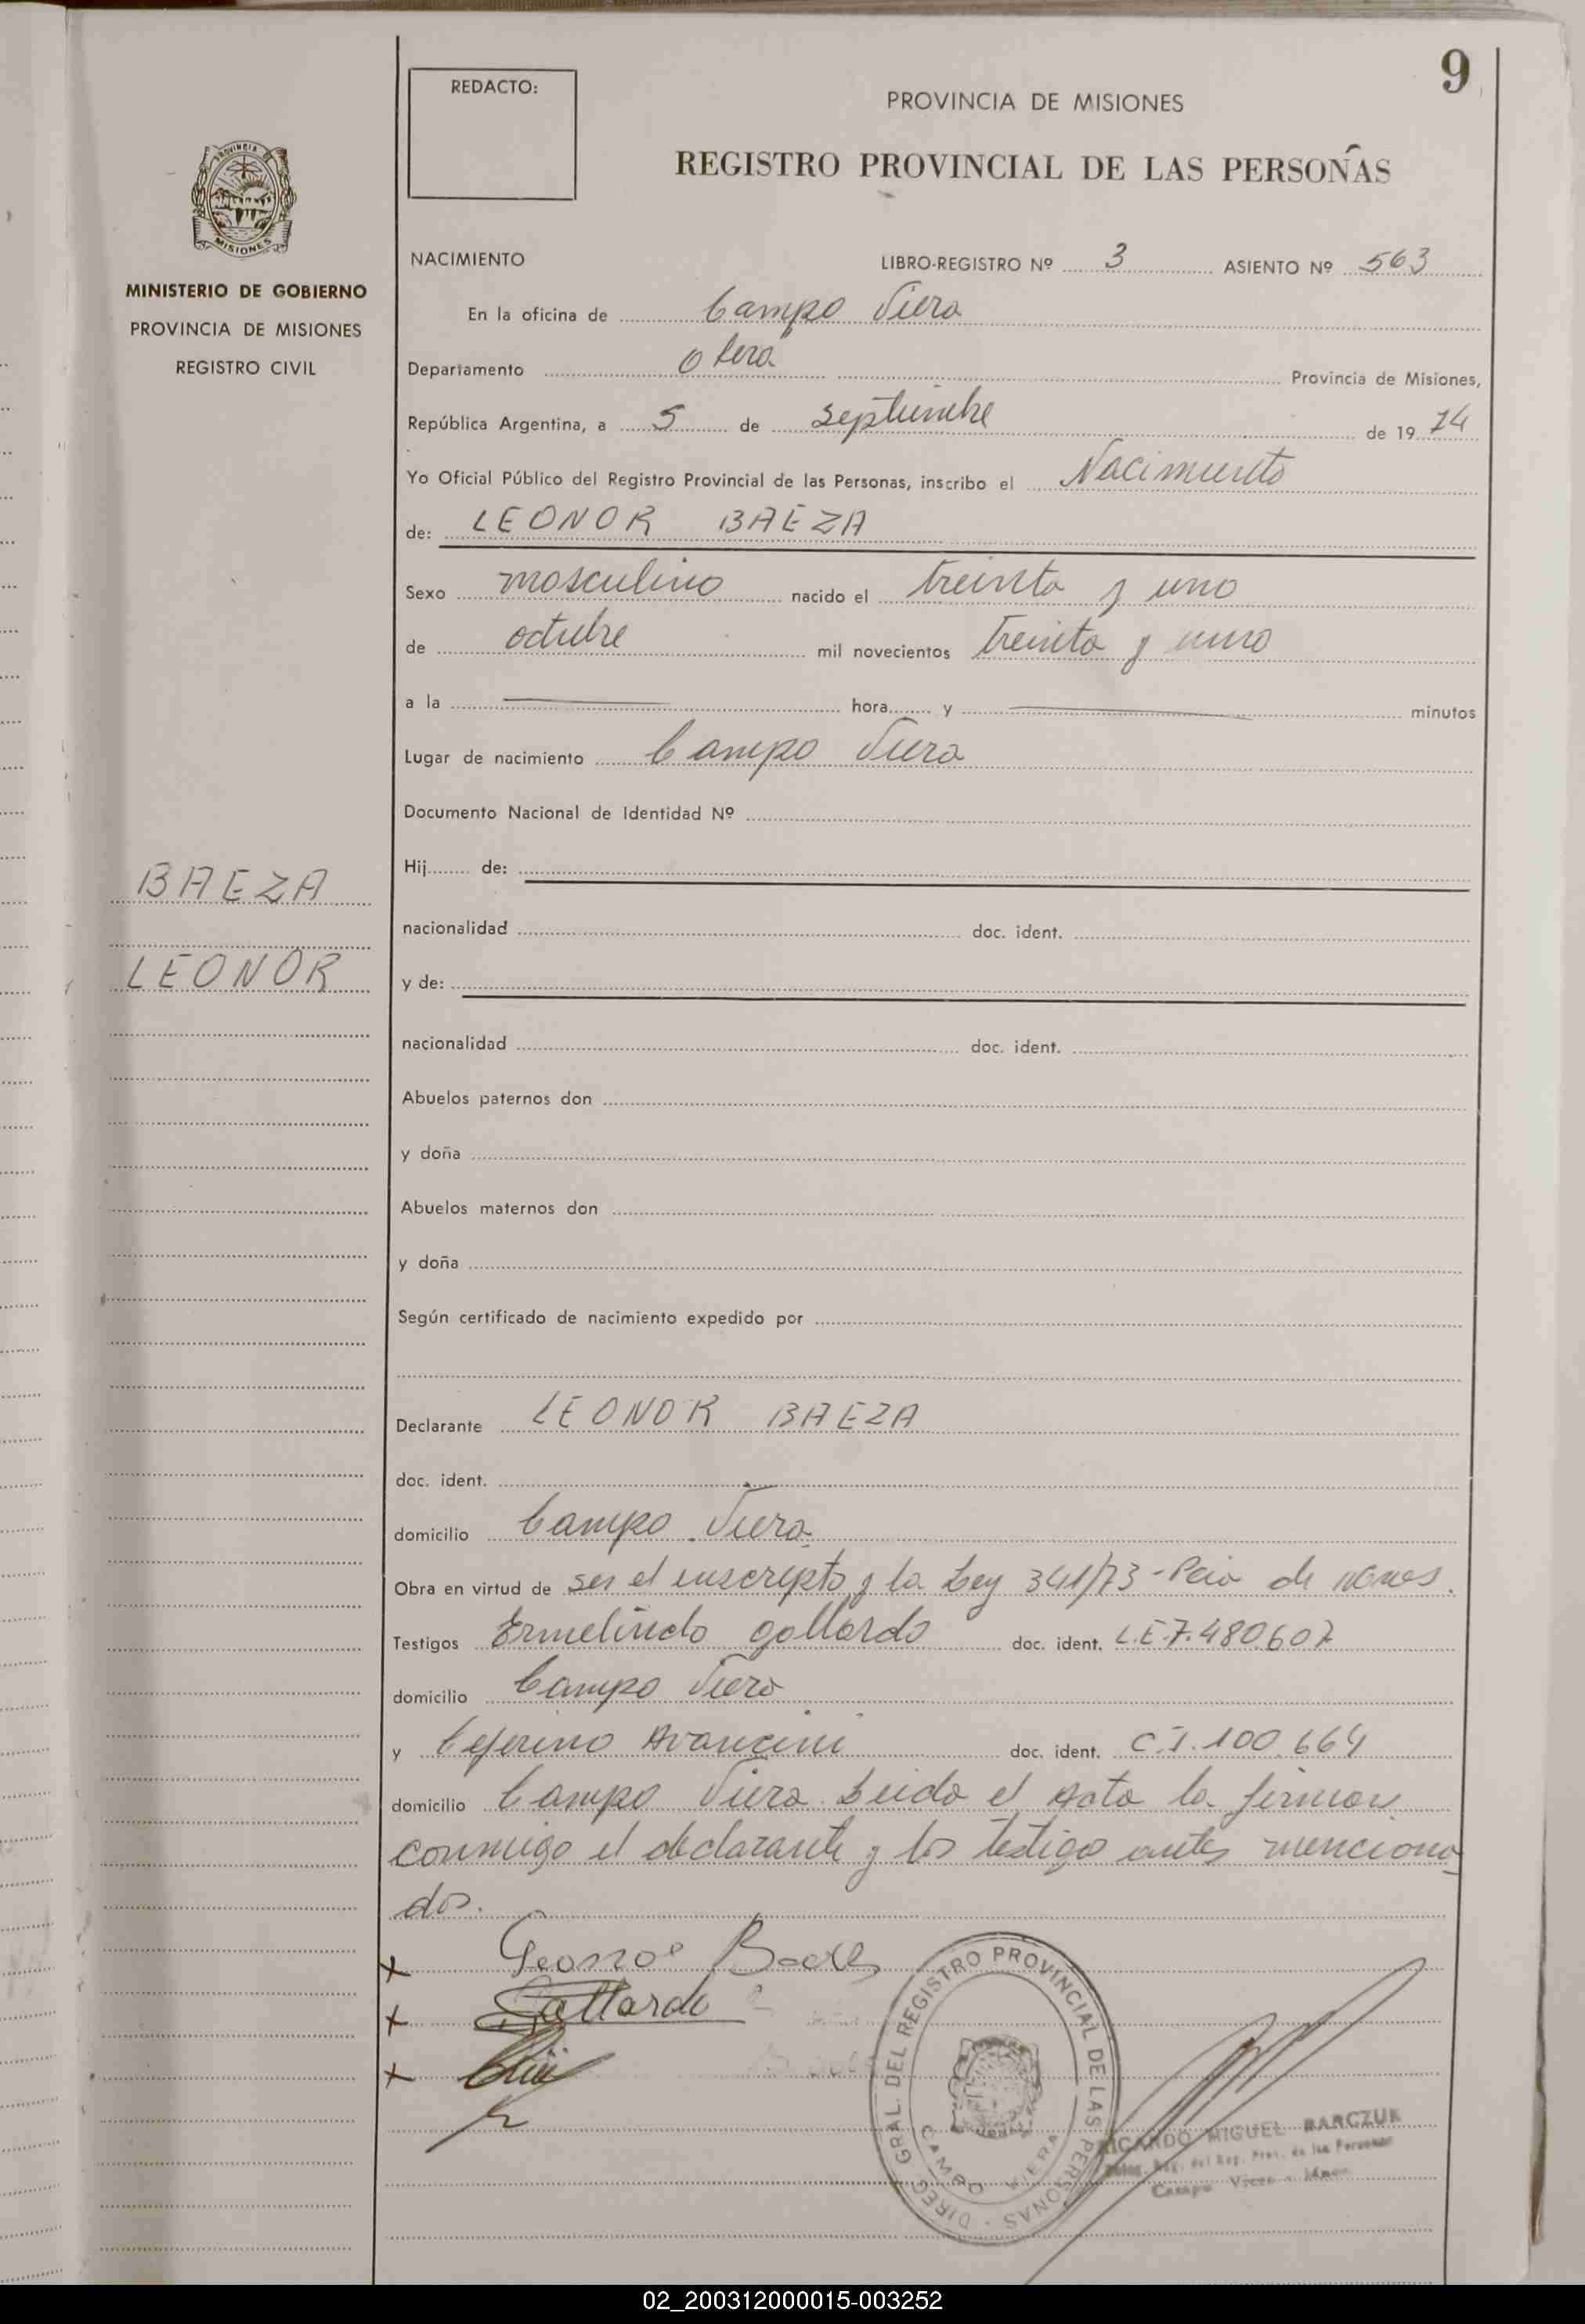 9
REDACTO:
PROVINCIA DE MISIONES
REGISTRO PROVINCIAL DE LAS PERSONAS
PROVINCIA
MISIONES
MINISTERIO DE GOBIERNO
PROVINCIA DE MISIONES
REGISTRO CIVIL
BAEZA
LEONOR
NACIMIENTO LIBRO-REGISTRO Nº 3 ASIENTO Nº 563
En la oficina de Campo Viera
Departamento Obera Provincia de Misiones,
República Argentina, a 5 de septiembre de 19 74
Yo Oficial Público del Registro Provincial de las Personas, inscribo el Nacimiento
de: LEONOR BAEZA
Sexo masculino nacido el treinta y uno
de octubre mil novecientos treinta y uno
a la hora y minutos
Lugar de nacimiento Campo Viera
Documento Nacional de Identidad Nº
Hij de:
nacionalidad doc. ident.
y de:
nacionalidad doc. ident.
Abuelos paternos don
y doña
Abuelos maternos don
y doña
Según certificado de nacimiento expedido por
Declarante LEONOR BAEZA
doc. ident.
domicilio Campo Viera
Obra en virtud de ser el inscripto y la Ley 341/73 - de
Testigos Ermelindo Gallardo doc. ident. L.E.7.480.607
domicilio Campo Viera
y Ceferino Avancini doc. ident. C.I. 100.664
domicilio Campo Viera. Leida el Acta la firman
conmigo el declarante y los testigo antes menciona
dos.
Gallardo
DIREC. GRAL. DEL REGISTRO PROVINCIAL DE LAS PERSONAS
CAMPO VIERA
RICARDO MIGUEL BARCZUK
Campo Viera
02_200312000015-003252